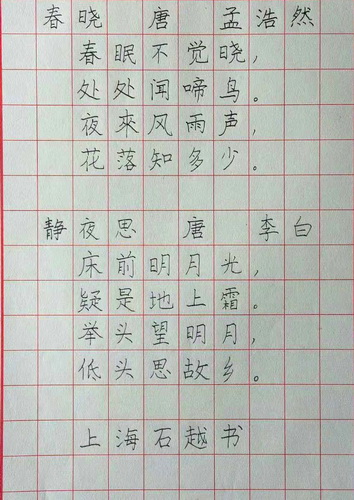 春晓 唐 孟浩然
春眠不觉晓，
处处闻啼鸟。
夜来风雨声，
花落知多少。
静夜思 唐 李白
床前明月光，
疑是地上霜。
举头望明月，
低头思故乡。
上海石越书